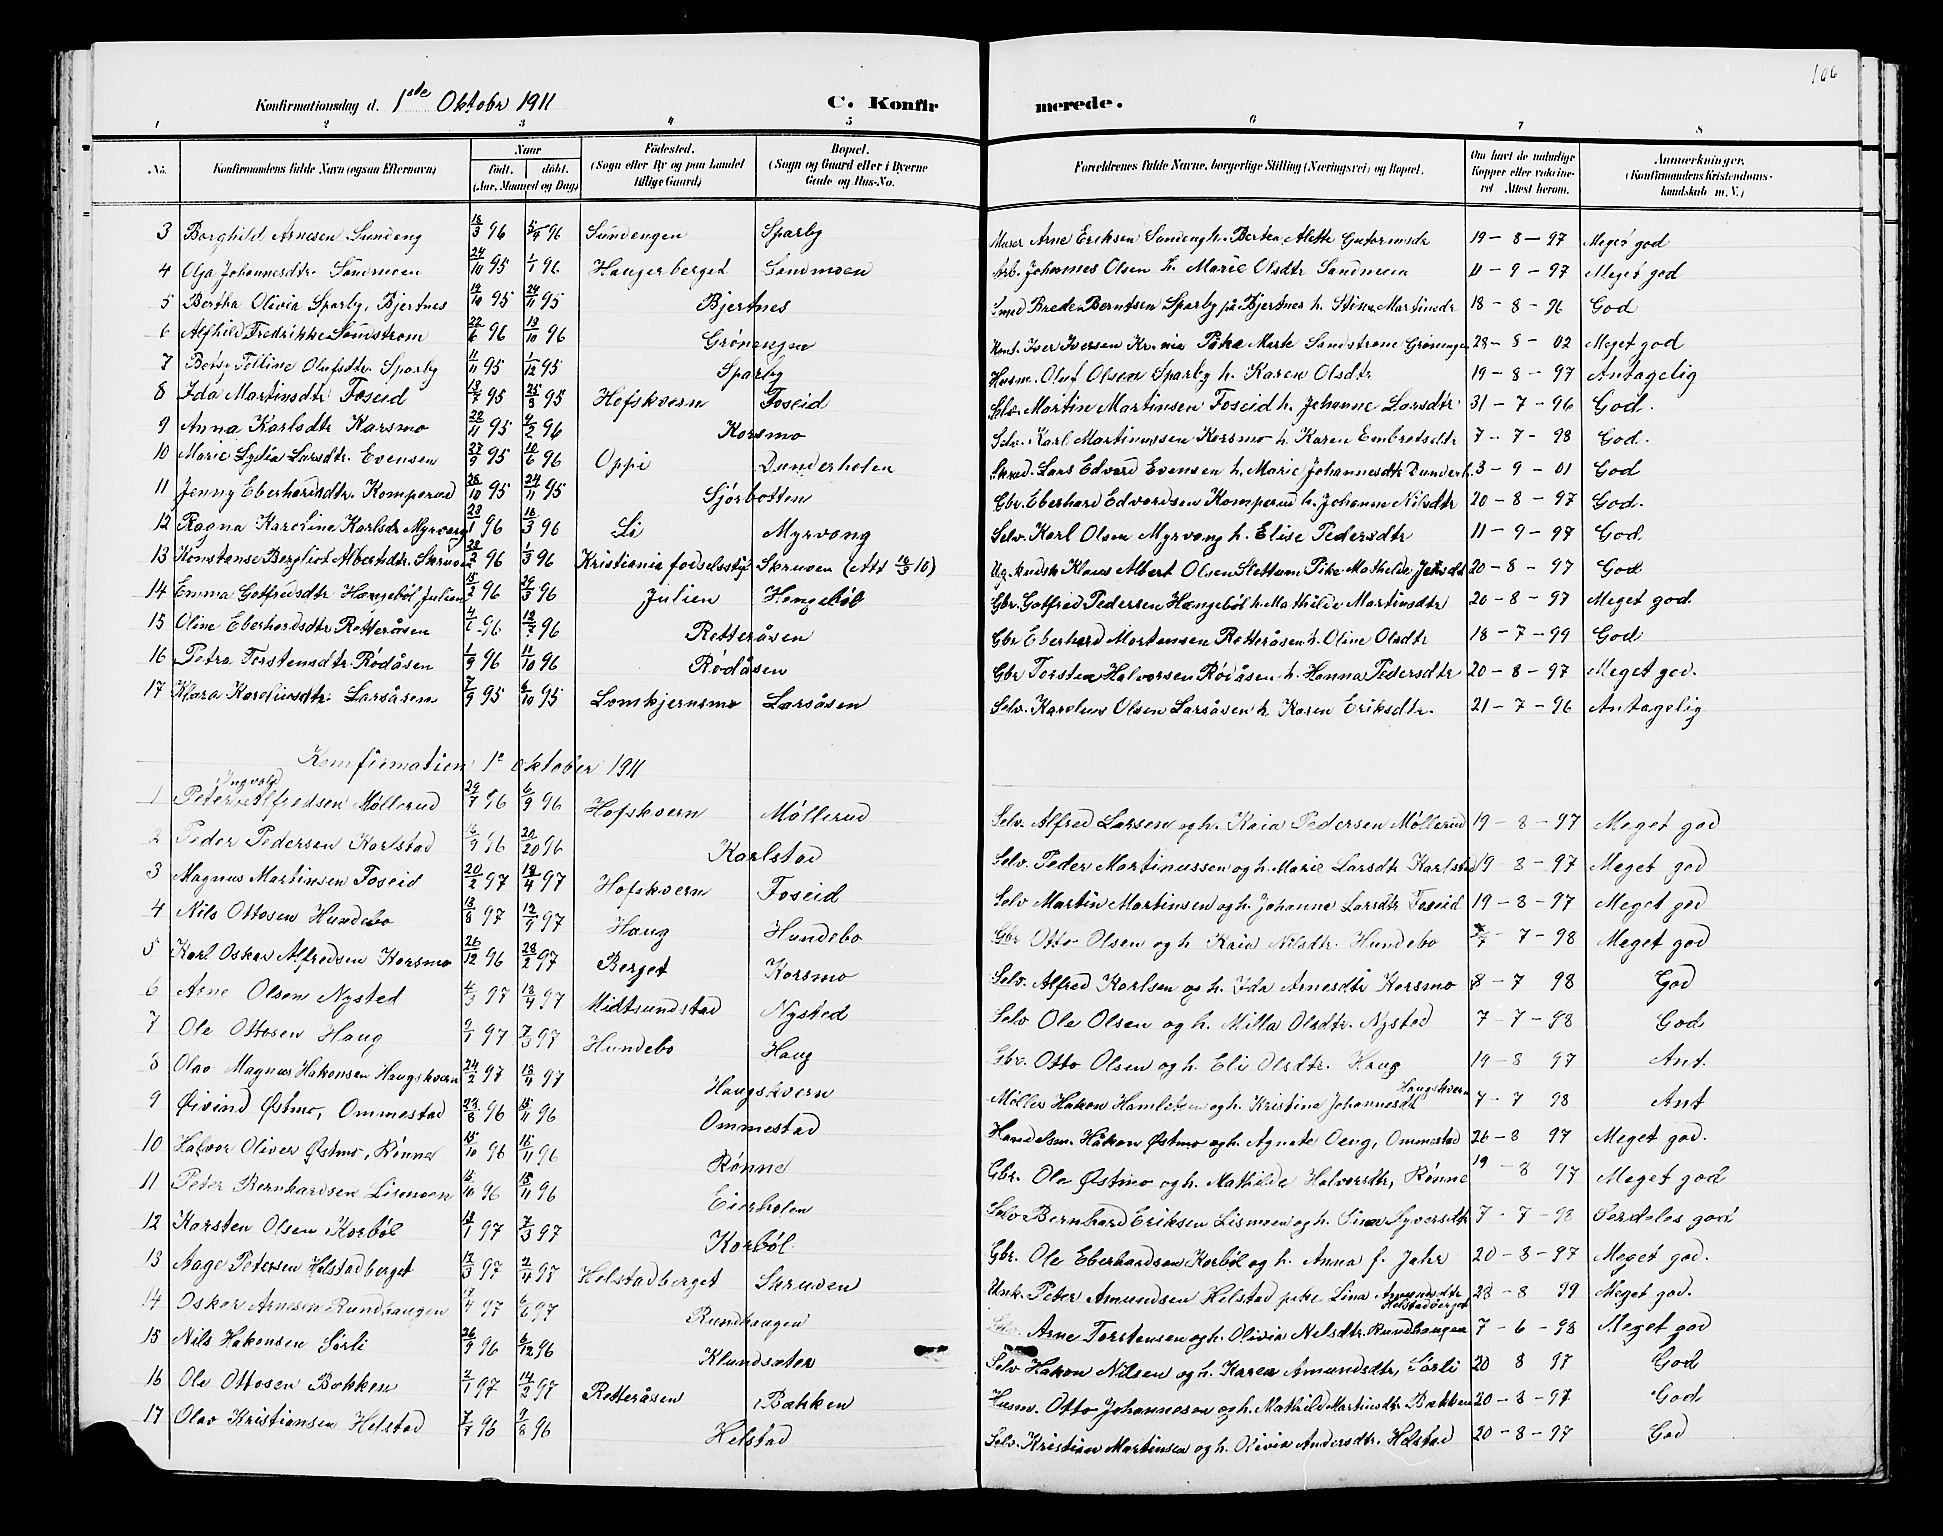 106
Konfirmationsdag d. 1ste Oktobr 1911 C. Konfirmerede.
1 2 3 4 5 6 7 8
No. Konfirmandens fulde Navn (ogsaa Efternavn) Naar født. døbt. (Aar, Maaned og Dag) Fødested. (Sogn eller By og paa Landet tillige Gaard) Bopæl. (Sogn og Gaard eller i Byerne Gade og Hus-No. Forældrenes fulde Navne, borgerlige Stilling (Næringsvei) og Bopæl. Om havt de naturlige Kopper eller vaccineret Attest herom. Anmærkninger. (Konfirmandens Kristendomskundskab m. V.)
3 Borghild Arnesen Sundeng 18/3 96 5/4 96 Sundengen Sparby Murer Arne Eriksen Sundeng h. Bertea Alette Gutormsdr 19-8-97 Meget god
4 Olga Johannesdtr. Sandmoen 24/10 95 1/1 96 Haugerberget Sandmoen Arb. Johannes Olsen h. Marie Olsdtr Sandmoen 11-9-97 Meget god
5 Bertha Olivia Sparby, Bjertnes 19/10 95 24/11 95 Bjertnes Smed Brede Berntsen Sparby på Bjertnes h. Stina Martinsdtr 18-8-96 God
6 Alfhild Fredrikke Sandstrøm 22/6 96 13/10 96 Grønengen Iver Iversen Pike Marte Sandstrøm Grøningen 28-8-02 Meget god
7 Betsy Olufsdtr. Sparby 11/11 95 1/12 95 Sparby Husm. Oluf Olsen Sparby h. Karen Olsdtr 19-8-97 Antagelig
8 Ida Martinsdtr Foseid 13/7 95 25/8 95 Hofskvern Foseid Selv. Martin Martinsen Foseid h. Johanne Larsdtr 31-7-96 God.
9 Anna Karlsdtr Karsmo 22/11 95 2/2 96 Korsmo Selv. Karl Martinussen Korsmo h. Karen Embretsdtr 7-7-98 God.
10 Marie Lydia Larsdtr. Evensen 27/9 95 10/6 96 Oppi Dunderholen Skred. Lars Edvard Evensen h. Marie Johannesdtr Dunderh. 3-9-01 God
11 Jenny Eberhardsdtr. Komperud 28/10 95 24/11 95 Sjørbotten Gbr. Eberhard Edvardsen Komperud h. Johanne Nilsdtr 20-8-97 God.
12 Ragna Karoline Karlsdr Myrvang 23/1 96 16/3 96 Li Myrvang Selv. Karl Olsen Myrvang h. Elise Pedersdtr 11-9-97 God
13 Konstanse Bergliot Albertsdtr. Skruven 28/2 96 1/3 96 Kristiania fødselsstif. Skruven (Att 10) Klaus Albert Olsen Slettum Pike Mathilde Jensdt 20-8-97 God
14 Emma Gotfredsdtr Hængebøl, Julien 15/2 96 29/3 96 Julien Hengebøl Gbr. Gotfred Pedersen Hængebøl h. Mathilde Martinsdtr 20-8-97 Meget god.
15 Oline Eberhardsdtr Retteråsen 96 96 Retteråsen Gbr Eberhard Martensen Retteråsen h. Oline Olsdtr 18-7-99 God
16 Petra Torstensdtr. Rødåsen 1/9 96 11/10 96 Rødåsen Gbr Torsten Halvorsen Rødåsen h. Hanna Pedersdtr 20-8-97 Meget god.
17 Klara Karoliusdtr. Larsåsen 7/9 95 6/10 95 Lomkjernsmo Larsåsen Selv. Karolius Olsen Larsåsen h. Karen Eriksdtr. 21-7-96 Antagelig
Komfirmation 1ste oktober 1911
1 Peter Ingvald Alfredsen Møllerud 29/7 96 6/9 96 Hofskvern Møllerud Selv. Alfred Larsen og h. Kaia Pedersen Møllerud 19-8-97 Meget god
2 Peder Pedersen Karlstad 96 96 Karlstad Selv. Peder Martinussen og h. Marie Larsdtr Karlstad 19-8-97 Meget god
3 Magnus Martinsen Foseid 20/2 97 18/4 97 Hofskvern Foseid Selv Martin Martinsen og h. Johanna Larsdtr Foseid 19-8-97 Meget god
4 Nils Ottosen Hundebo 13/8 97 12/9 97 Haug Hundebo Gbr Otto Olsen og h. Kaia Nilsdtr. Hundebo 7-7-98 Meget god
5 Karl Oskar Alfredsen Korsmo 26/12 96 28/2 97 Berget Korsmo Selv. Alfred Karlsen og h. Ida Arnesdtr Korsmo 8-7 98 God
6 Arne Olsen Nysted 4/3 97 18/4 97 Midtsundstad Nysted Selv Ole Olsen og h. Milla Olsdtr. Nysted 7-7-98 God
7 Ole Ottosen Haug 9/1 97 7/3 97 Hundebo Haug Gbr. Otto Olsen og h. Eli Olsdtr. Haug 19-8 97 Ant.
8 Olav Magnus Hakonsen Haugskvern 24/2 97 18/4 97 Haugskvern Møller Hakon Hamletsen og h. Kristine Johannesdt Haugskvern 7-7 98 Ant
9 Øivind Østmo, Ommestad 23/8 96 15/11 96 Ommestad Handelsm. Håkon Østmo og h. Agnete Oeng, Ommestad 26-8 97 Meget god.
10 Halvor Oliver Østmo, Rønne 15/10 96 15/11 96 Rønne Gbr. Ole Østmo og h. Mathilde Halvorsdtr, Rønne 19-8 97 Meget god
11 Peter Bernhardsen Lismoen 96 15/11 96 Eierholen Selv Bernhard Eriksen Lismoen og h. Sina Syversdtr 7-7-98 Særdeles god
12 Karsten Olsen Korbøl 18/1 97 7/3 97 Korbøl. Gbr. Ole Eberhardsen Korbøl og h. Anna f. Jahr 20-8-97 Meget god.
13 Aage Petersen Helstadberget 12/3 97 2/4 97 Helstadberget Skruven Unk. Peter Amundsen Helstad pike Lina Amundsdtr Helstadberget 28-8 99 Meget god.
14 Oskar Arnesen Rundhaugen 97 97 Rundhaugen Selv. Arne Torstensen og h. Olivia Nilsdtr. Rundhaugen 7-6-98 Meget god
15 Nils Hakonsen Sørli 26/9 96 6/12 96 Klundsæter Selv Hakon Nilsen og h. Karen Amundsdtr, Sørli 20 8 97 God
16 Ole Ottosen Bakken 2/1 97 14/2 97 Retteråsen Bakken Husm. Otto Johannesen og h. Mathilde Martinsdtr Bakken 20-8-97 God
17 Olav Kristiansen Helstad 7/7 96 9/8 96 Helstad Selv. Kristian Martinsen og h. Olivia Andersdtr. Helstad 20-8-97 God